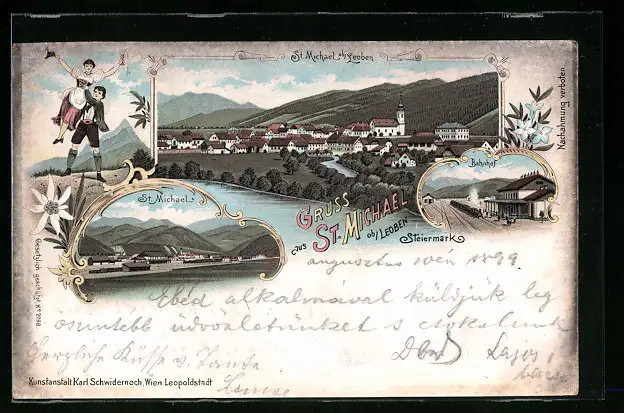 St. Michael ob/Leoben
Nachahmung verboten
Bahnhof
St. Michael
Gruss
aus St. Michael
ob/Leoben
Steiermark
Gesetzlich geschützt No
augusztus 10én 1899
Ebéd alkalmával küldjük leg
üdvözletünket s
Herzliche Küsse v. Tante
Lajos
Kunstanstalt Karl Schwidernoch, Wien Leopoldstadt